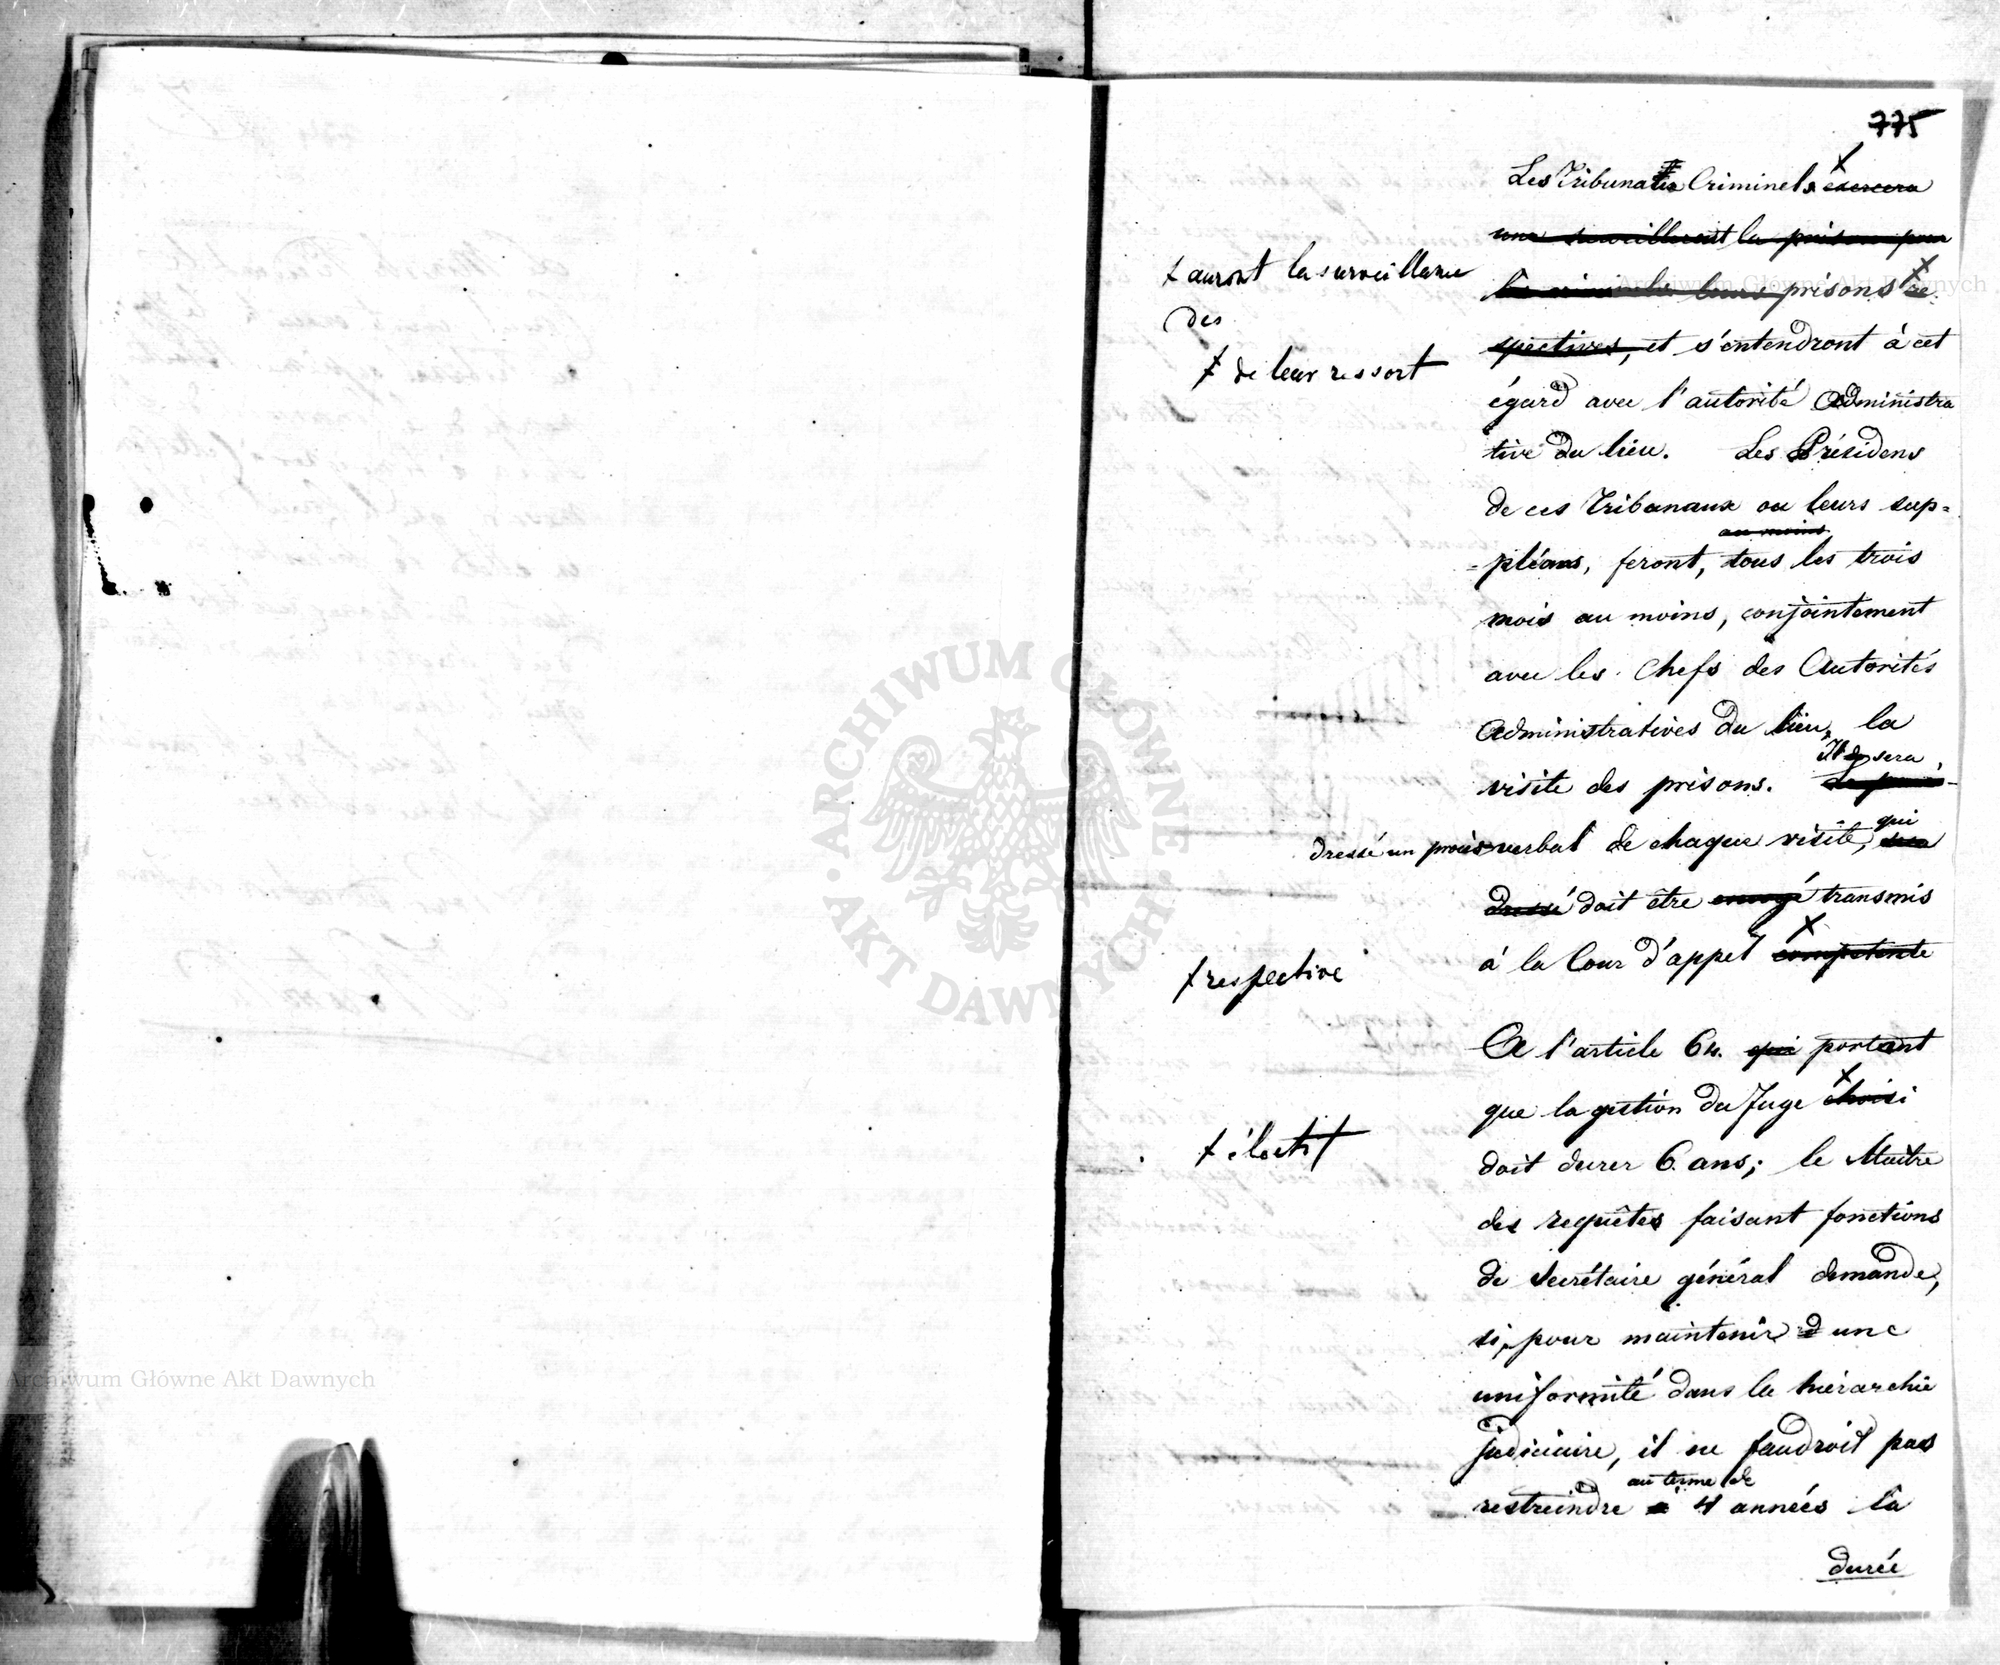 775
Les Tribunaux Criminels exercera
une surveilleront la prison pour
leurs prisons re
+ auront la surveillance
des
spectives, et s'entendront à cet
+ de leur ressort
égard avec l'autorité Administra
tive du lieu. Les Présidens
de ces Tribunaux ou leurs sup=
au moins
=pléans, feront, tous les trois
mois au moins, conjointement
avec les Chefs des Autorités
Administratives du lieu, la
Il sera
visite des prisons.
dressé un procès verbal de chaque visite, qui sera
dressé doit être envoyé transmis
à la Cour d'appel compétente
+ respective
A l'article 64. qui portant
que la gestion du Juge choisi
+ électif
doit durer 6. ans; le Maître
des requêtes faisant fonctions
de Secrétaire général demande,
si, pour maintenir d une
uniformité dans la hiérarchie
judiciaire, il ne faudroit pas
au terme de
restreindre à 4 années la
durée
ARCHIWUM GŁÓWNE
AKT DAWNYCH
Archiwum Główne Akt Dawnych
Archiwum Główne Akt Dawnych